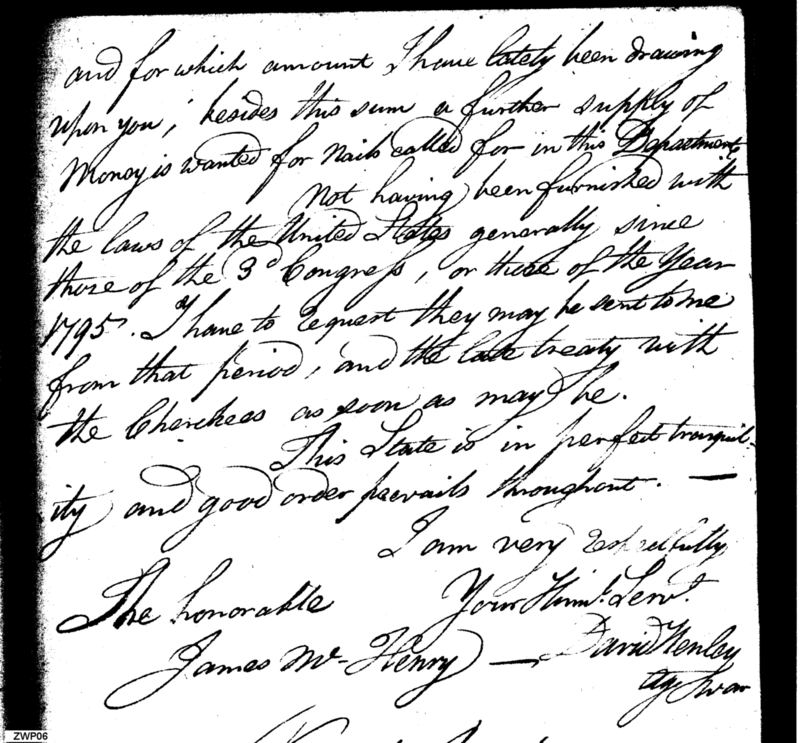 and for which amount I have lately been drawing
upon you; besides this sum a further supply of
Money is wanted for Nails called for in this Department
Not having been furnished with
the laws of the United States generally since
those of the 3d Congress, or those of the Year
1795. I have to request they may be sent to me
from that period, and the late treaty with
the Cherokees as soon as may be.
This State is in perfect tranquil-
ity and good order prevails throughout. —
I am very respectfully
The honorable Your Humb. Servt.
James McHenry — David Henley
Agt. War
ZWP06